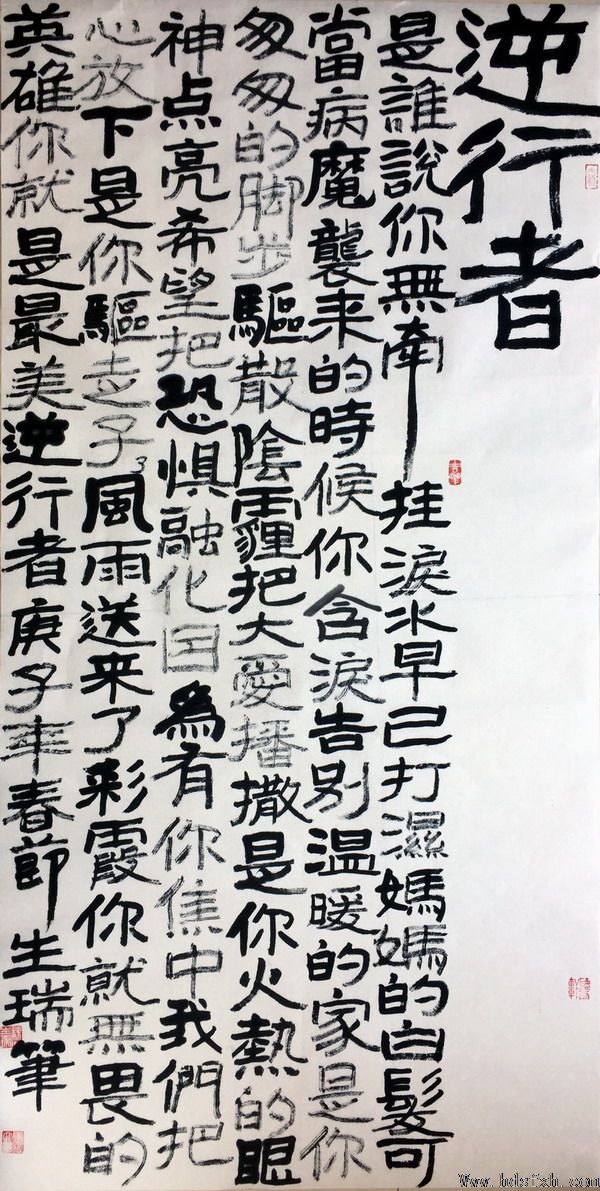 逆行者
是誰說你無牽挂淚水早已打濕媽媽的白髮可
當病魔襲来的時候你含淚告别温暖的家是你
匆匆的脚步驅散陰霾把大愛播撒是你火熱的眼
神点亮希望把恐惧融化因為有你焦中我們把
心放下是你驅走了風雨送来了彩霞你就無畏的
英雄你就是最美逆行者庚子年春節生瑞筆
Www.hdsfxh.com